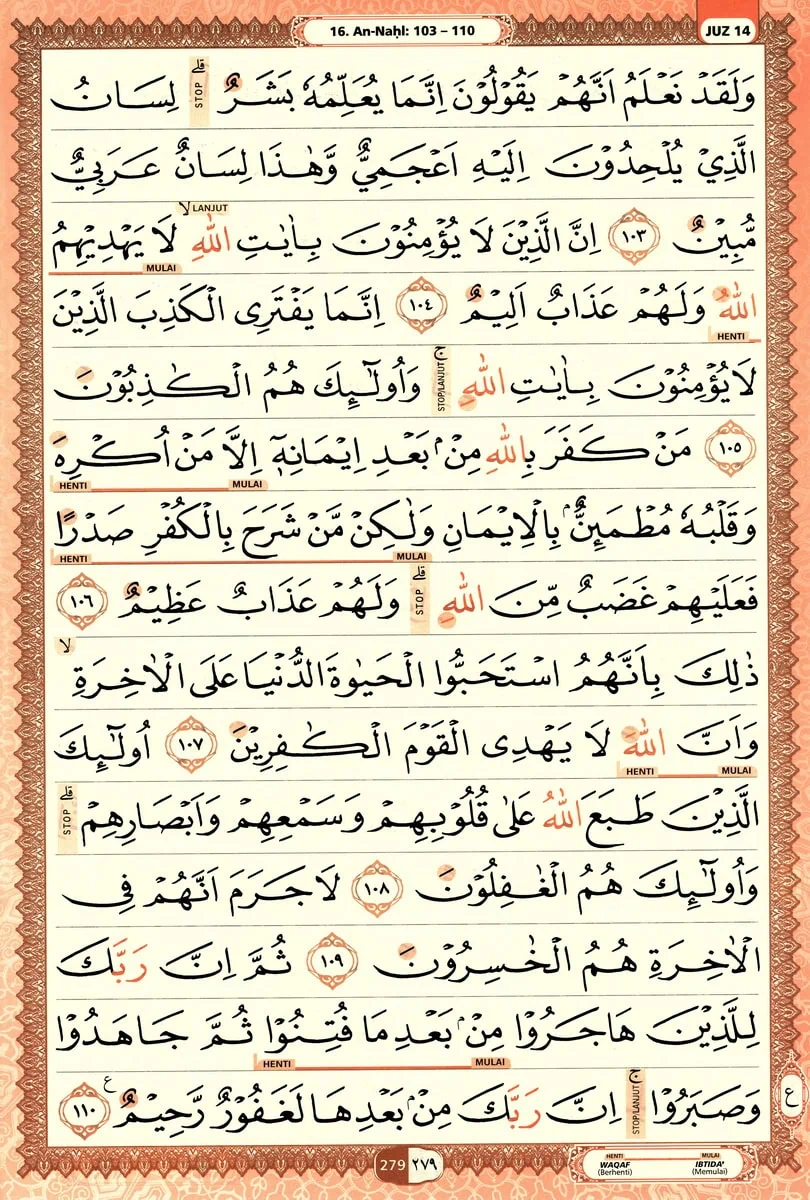 16. An-Naḥl: 103 – 110
JUZ 14
وَلَقَدْ نَعْلَمُ اَنَّهُمْ يَقُوْلُوْنَ اِنَّمَا يُعَلِّمُهٗ بَشَرٌۗ STOP لِسَانُ
الَّذِيْ يُلْحِدُوْنَ اِلَيْهِ اَعْجَمِيٌّ وَّهٰذَا لِسَانٌ عَرَبِيٌّ
مُّبِيْنٌ ١٠٣ اِنَّ الَّذِيْنَ لَا يُؤْمِنُوْنَ بِاٰيٰتِ اللّٰهِ ۙ لَا يَهْدِيْهِمُ
LANJUT
MULAI
اللّٰهُ وَلَهُمْ عَذَابٌ اَلِيْمٌ ١٠٤ اِنَّمَا يَفْتَرِى الْكَذِبَ الَّذِيْنَ
HENTI
لَا يُؤْمِنُوْنَ بِاٰيٰتِ اللّٰهِ ۚ STOP/LANJUT وَاُولٰۤىِٕكَ هُمُ الْكٰذِبُوْنَ
١٠٥ مَنْ كَفَرَ بِاللّٰهِ مِنْۢ بَعْدِ اِيْمَانِهٖٓ اِلَّا مَنْ اُكْرِهَ
MULAI HENTI
وَقَلْبُهٗ مُطْمَىِٕنٌّۢ بِالْاِيْمَانِ وَلٰكِنْ مَّنْ شَرَحَ بِالْكُفْرِ صَدْرًا
MULAI HENTI
فَعَلَيْهِمْ غَضَبٌ مِّنَ اللّٰهِ ۗ STOP وَلَهُمْ عَذَابٌ عَظِيْمٌ ١٠٦
ذٰلِكَ بِاَنَّهُمُ اسْتَحَبُّوا الْحَيٰوةَ الدُّنْيَا عَلَى الْاٰخِرَةِ ۙ
وَاَنَّ اللّٰهَ لَا يَهْدِى الْقَوْمَ الْكٰفِرِيْنَ ١٠٧ اُولٰۤىِٕكَ
HENTI MULAI
الَّذِيْنَ طَبَعَ اللّٰهُ عَلٰى قُلُوْبِهِمْ وَسَمْعِهِمْ وَاَبْصَارِهِمْ ۗ STOP
وَاُولٰۤىِٕكَ هُمُ الْغٰفِلُوْنَ ١٠٨ لَا جَرَمَ اَنَّهُمْ فِى
الْاٰخِرَةِ هُمُ الْخٰسِرُوْنَ ١٠٩ ثُمَّ اِنَّ رَبَّكَ
لِلَّذِيْنَ هَاجَرُوْا مِنْۢ بَعْدِ مَا فُتِنُوْا ثُمَّ جَاهَدُوْا
MULAI HENTI
وَصَبَرُوْا ۚ STOP/LANJUT اِنَّ رَبَّكَ مِنْۢ بَعْدِهَا لَغَفُوْرٌ رَّحِيْمٌ ࣖ ١١٠
ع
279 ٢٧٩
HENTI MULAI
WAQAF IBTIDA'
(Berhenti) (Memulai)